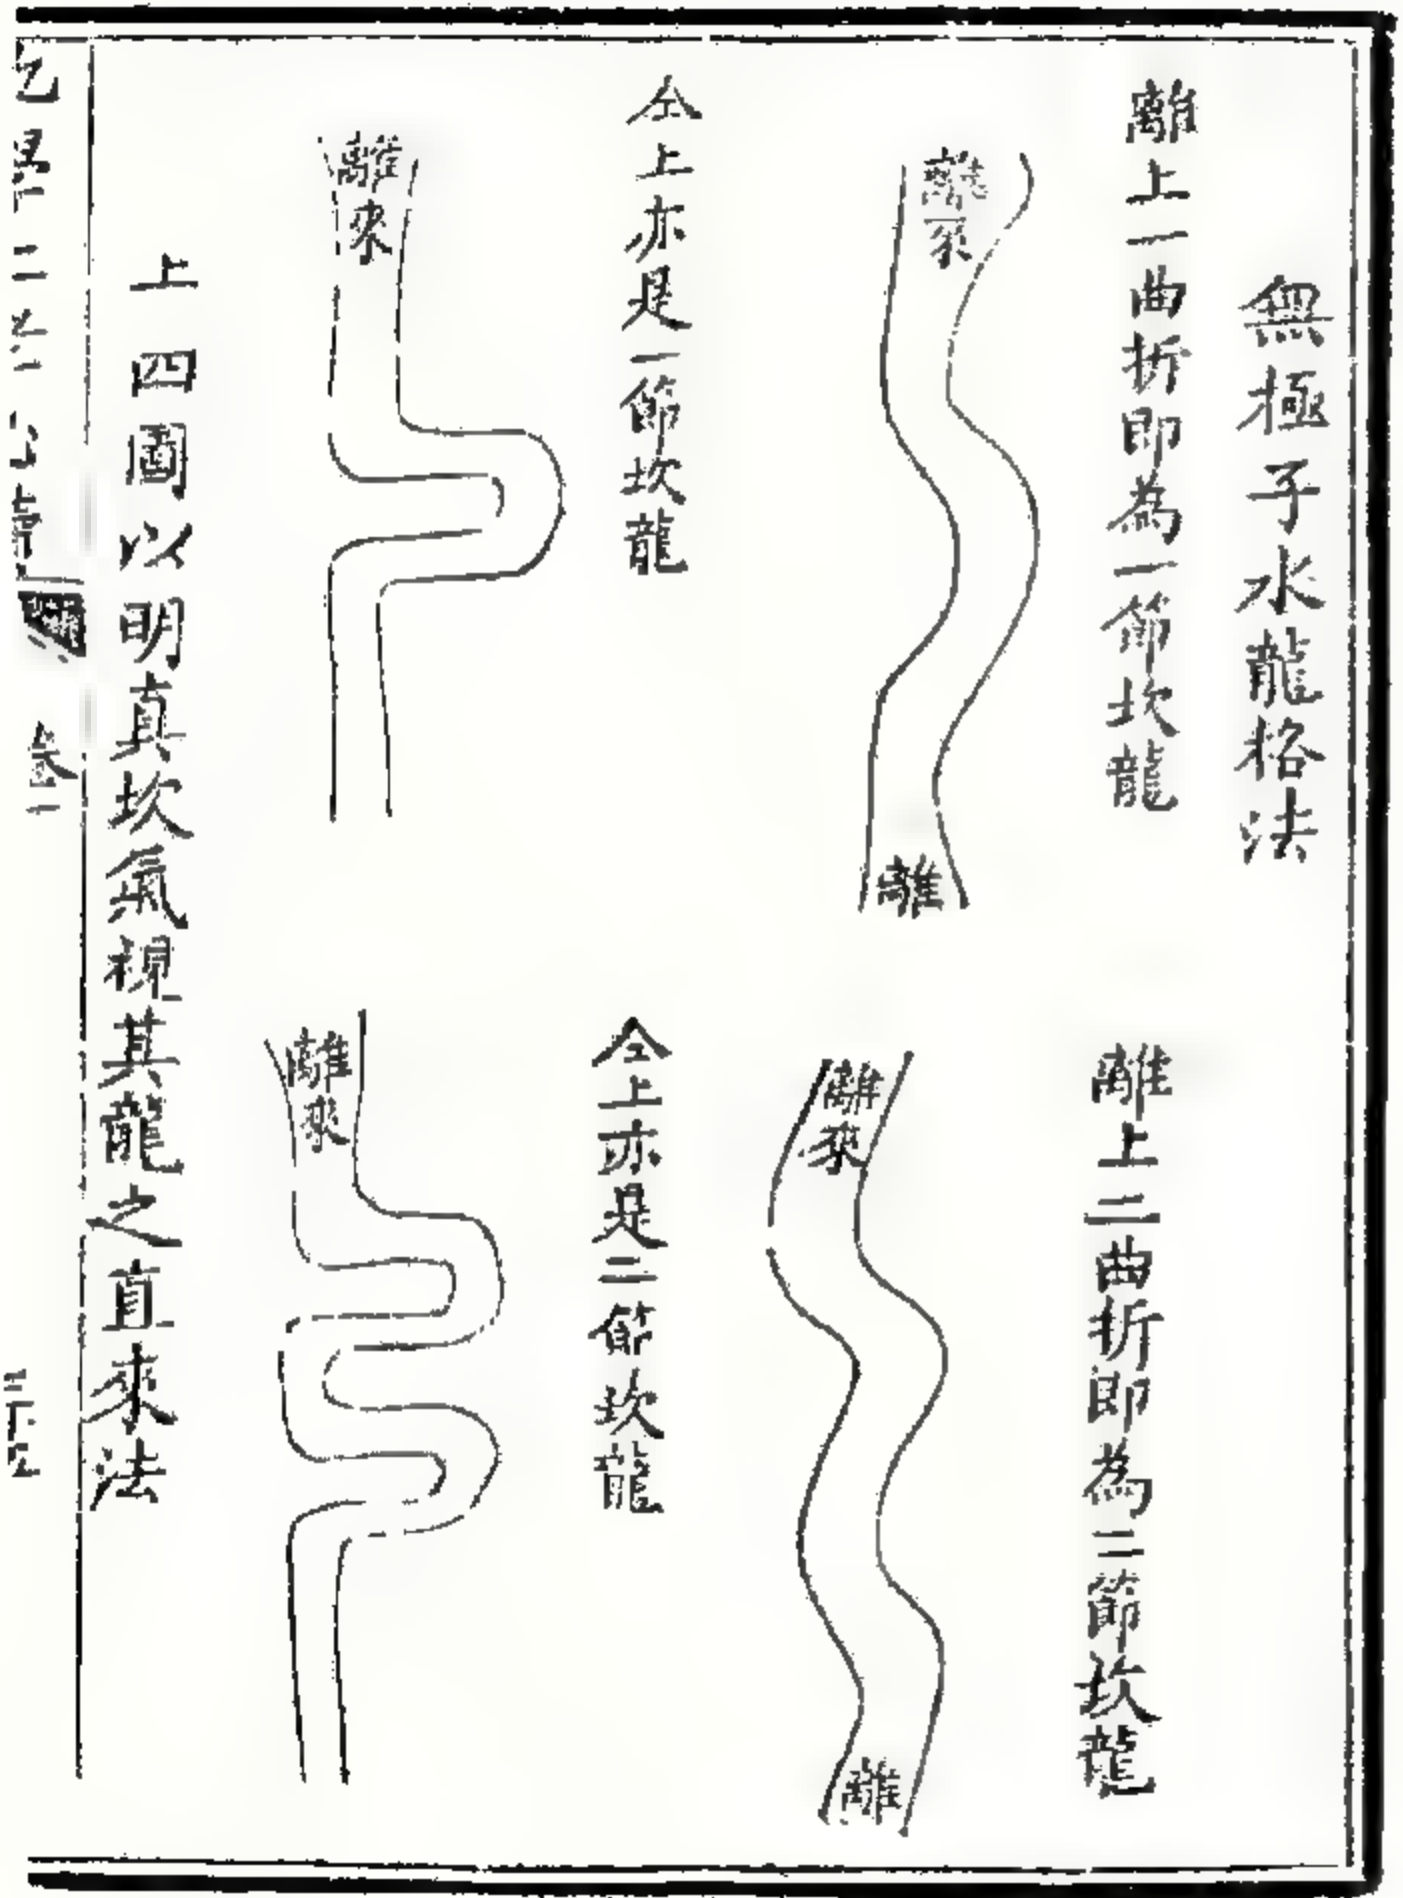 無極子水龍格法
離上一曲折即為一節坎龍
離來
離
離上二曲折即為二節坎龍
離來
離
仝上亦是一節坎龍
離來
仝上亦是二節坎龍
離來
上四圖以明真坎氣視其龍之直來法
卷一